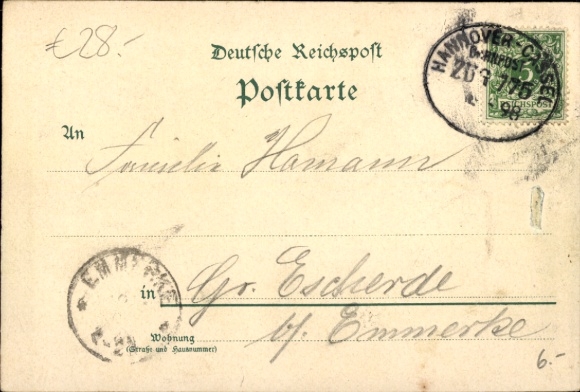 €28.-
Deutsche Reichspost
Postkarte
HANNOVER-CASSEL
BAHNPOST
ZUG 776
98
5
REICHSPOST
An
Familie Hamann
EMMERKE
in Gr. Escherde
b/ Emmerke
Wohnung
(Straße und Hausnummer)
6.-